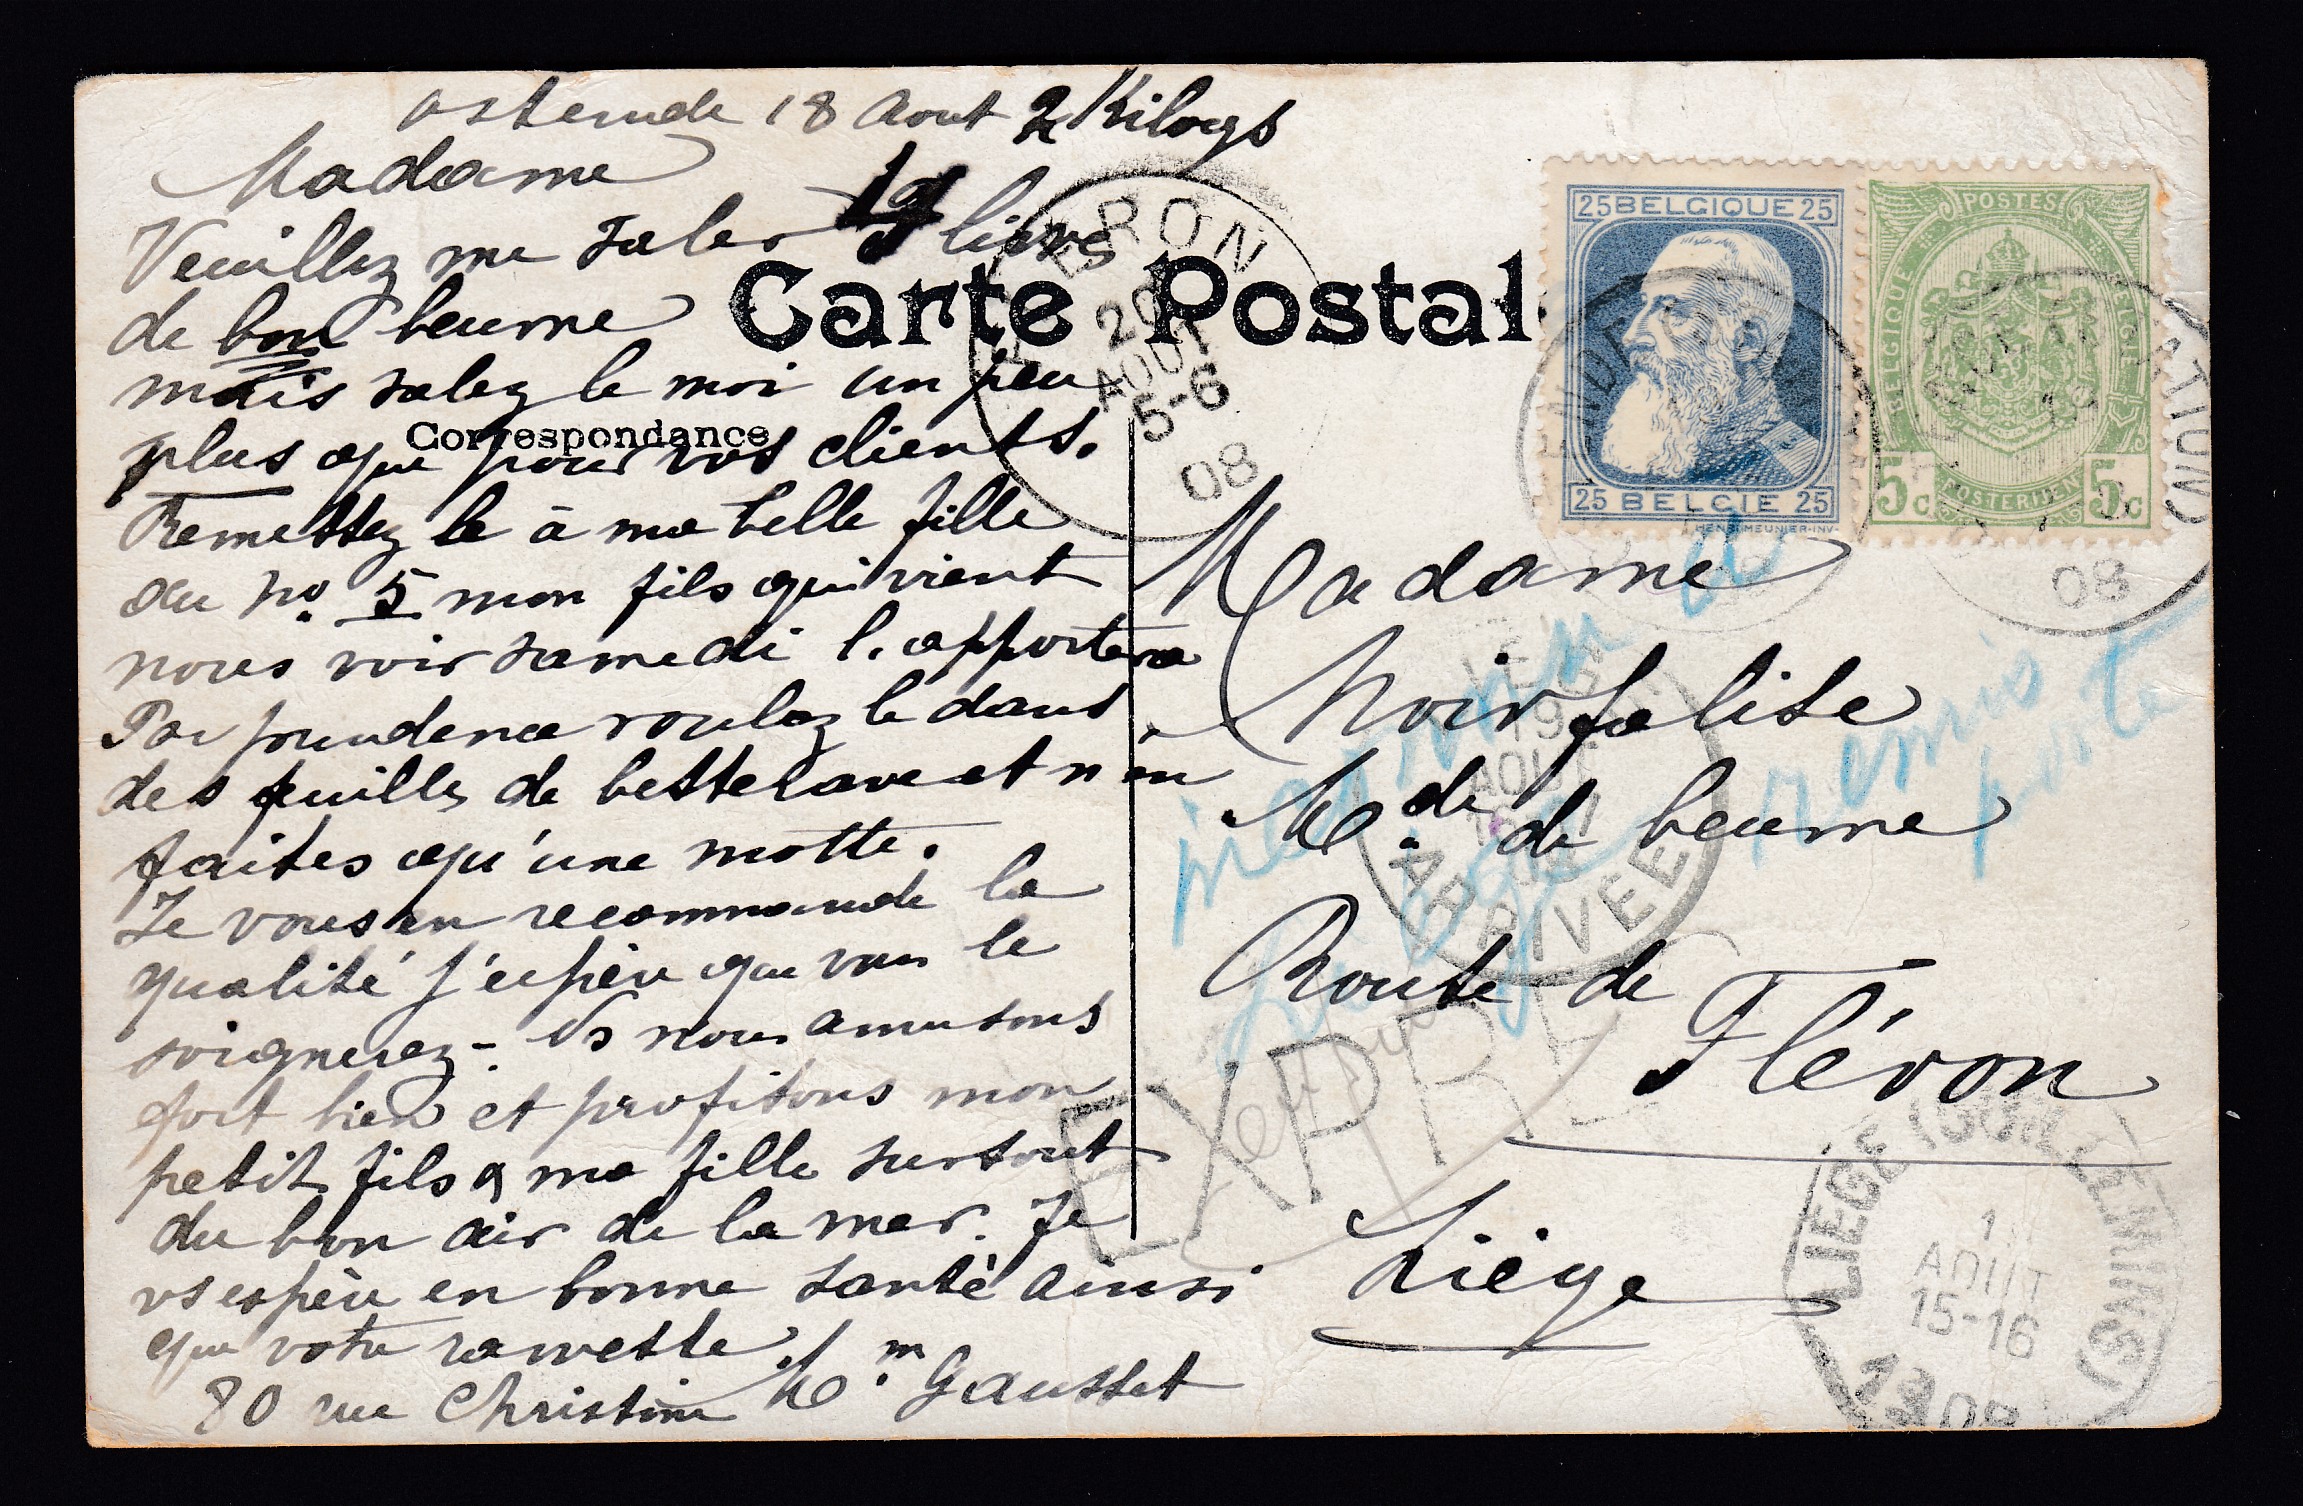 ostende 18 Aout 2 Kilogs
Madame
Veuillez me saler 19 livres
de bon beurre
mais salez le moi un peu
plus que pour vos clients.
Remettez le à ma belle fille
au no. 5 mon fils qui vient
nous voir samedi l'apportera
Par prudence roulez le dans
des feuilles de betterave et n'en
faites qu'une motte.
Je vous en recommande la
qualité j'espère que vous le
soignerez - Ns nous amusons
fort bien et profitons mon
petit fils & ma fille surtout
du bon air de la mer. Je
vs espère en bonne santé ainsi
que votre
80 rue Christine Me.m Gausset
Carte Postale
Correspondance
Madame
Noirfalise
Mde. de beurre
Route de
Fléron
Liège
25 BELGIQUE 25
25 BELGIE 25
HENRI MEUNIER-INV.
POSTES
BELGIQUE
BELGIË
5c 5c
POSTERIJEN
FLÉRON
20
AOUT
5-6
08
08
inconnu à
Liège remis
poste
LIEGE
19
AOUT
08
ARRIVEE
EXPRÈS
LIEGE (GUILLEMINS)
AOUT
15-16
1908